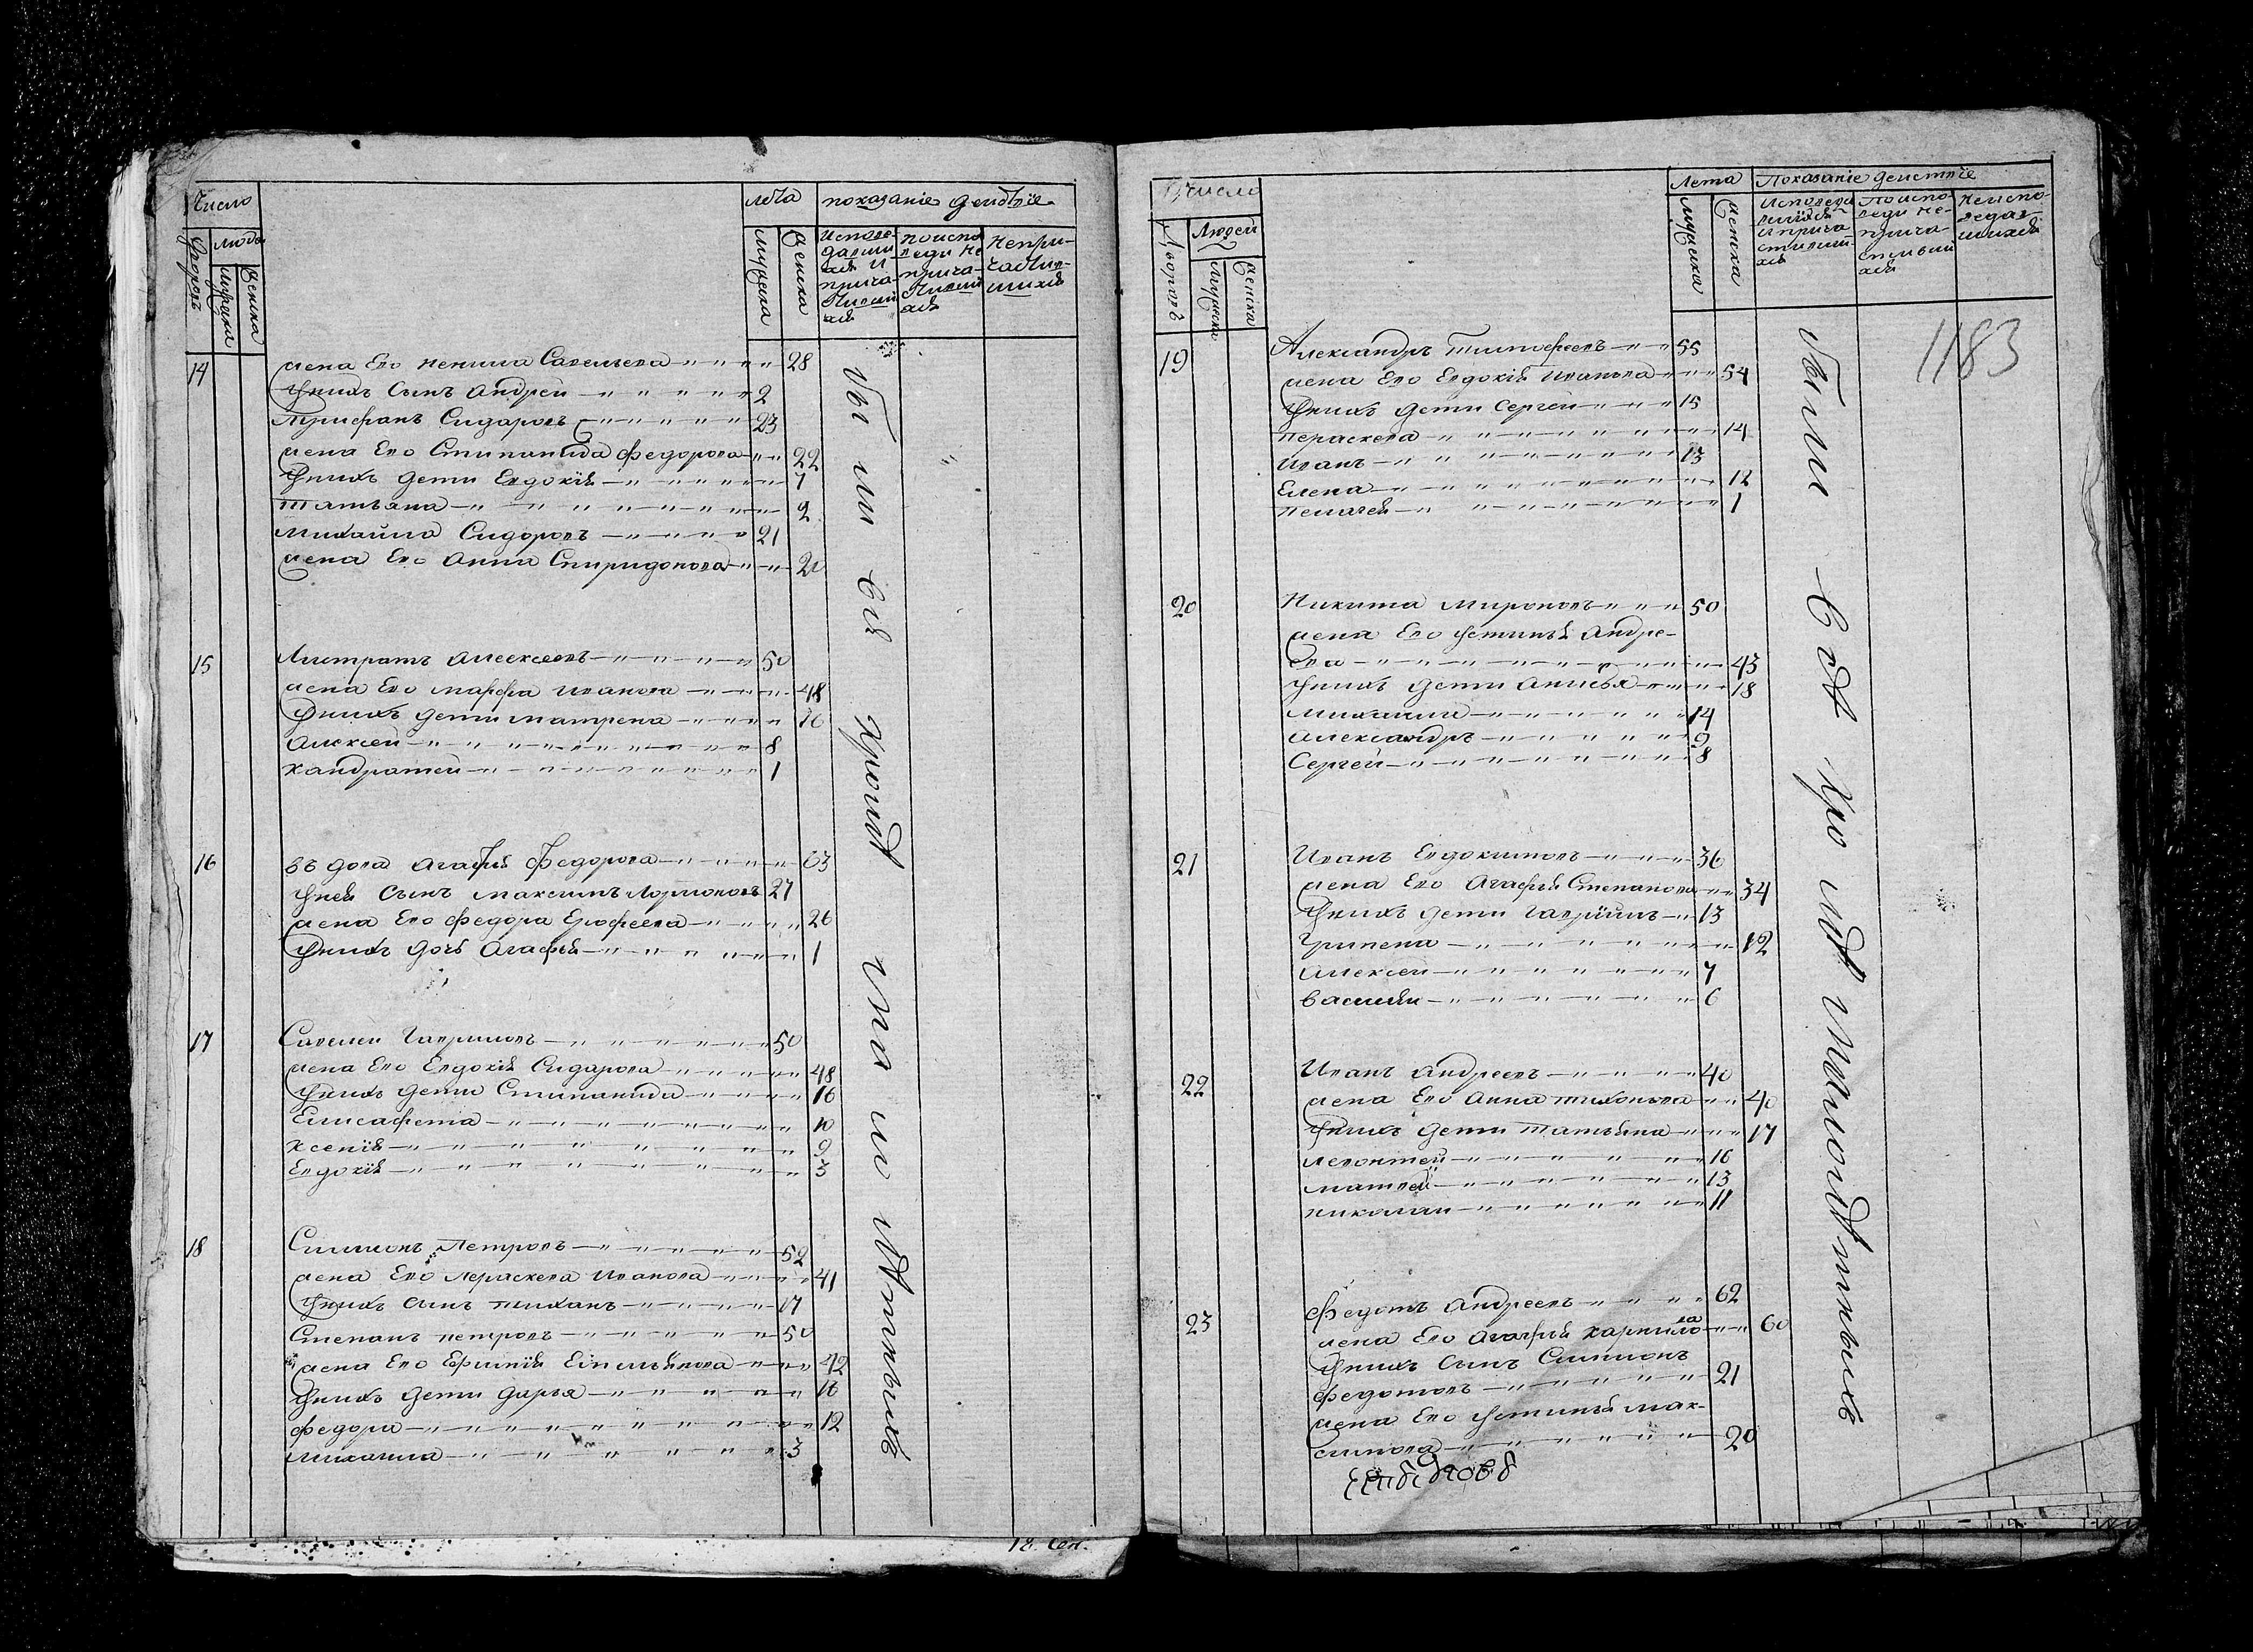 Число
лѣта
показание действие
людей
Дворовъ
мужеска
женска
мужеска
женска
Исповедавшихся и причастившихся
по исповеди не причастившихся
непричастившихся
14
жена Ево ненила Савельева 28
У них Сынъ Андрей 2
Трифанъ Сидаровъ 23
жена Ево Стипанида федорова 22
У нихъ дети Евдокия 7
татьяна 2
михайла Сидоровъ 21
жена Ево Анна Спиридонова 20
15
Алексеевъ 50
жена Ево марфа иванова 48
У нихъ дети матрена
Алексей 8
кандратей 1
16
въдова агафия федорова 63
У ней Сынъ максимъ 27
жена Ево федора Ерофеева 26
У нихъ дочь Агафья 1
17
Савелей Гавриловъ 50
жена Ево Евдокия Сидарова 48
У нихъ дети Стипанида 16
Елисафета 10
ксения 9
Евдокия 3
18
Симионъ Петровъ 52
жена Ево Пераскева Иванова 41
У нихъ сынъ тиханъ 17
Степанъ петровъ 50
жена Ево Ефимия Емельянова 42
У нихъ дети дарья 16
федора 12
михаила 3
18 Сен.
Число
Лета
Показание действие
Дворовъ
Людей
мужеска
женска
мужеска
женска
Исповедавшихся и причастившихся
По исповеди не причастившихся
Неисповедавшихся
1183
19
Александръ тимофеевъ 55
жена Ево Евдокия Иванова 54
У нихъ дети Сергей 15
пераскева 14
Иванъ 13
Елена 12
пелагея 1
20
Никита мироновъ 50
жена Ево устинья Андре-
ева 43
У нихъ дети Анисья 18
михаила 14
александръ 9
Сергей 8
21
Иванъ Евдокимовъ 36
жена Ево Агафия Степанова 34
У нихъ дети гаврiилъ 13
Грипена 12
Алексей 7
василей 6
22
Иванъ андреевъ 40
жена Ево Анна тихонова 40
У нихъ дети татьяна 17
левонтей 16
матвей 13
николай 11
23
федотъ андреевъ 62
жена Ево агафия карпилова 60
У нихъ сынъ Симионъ
федотовъ 21
жена Ево устинья мак-
симова 20